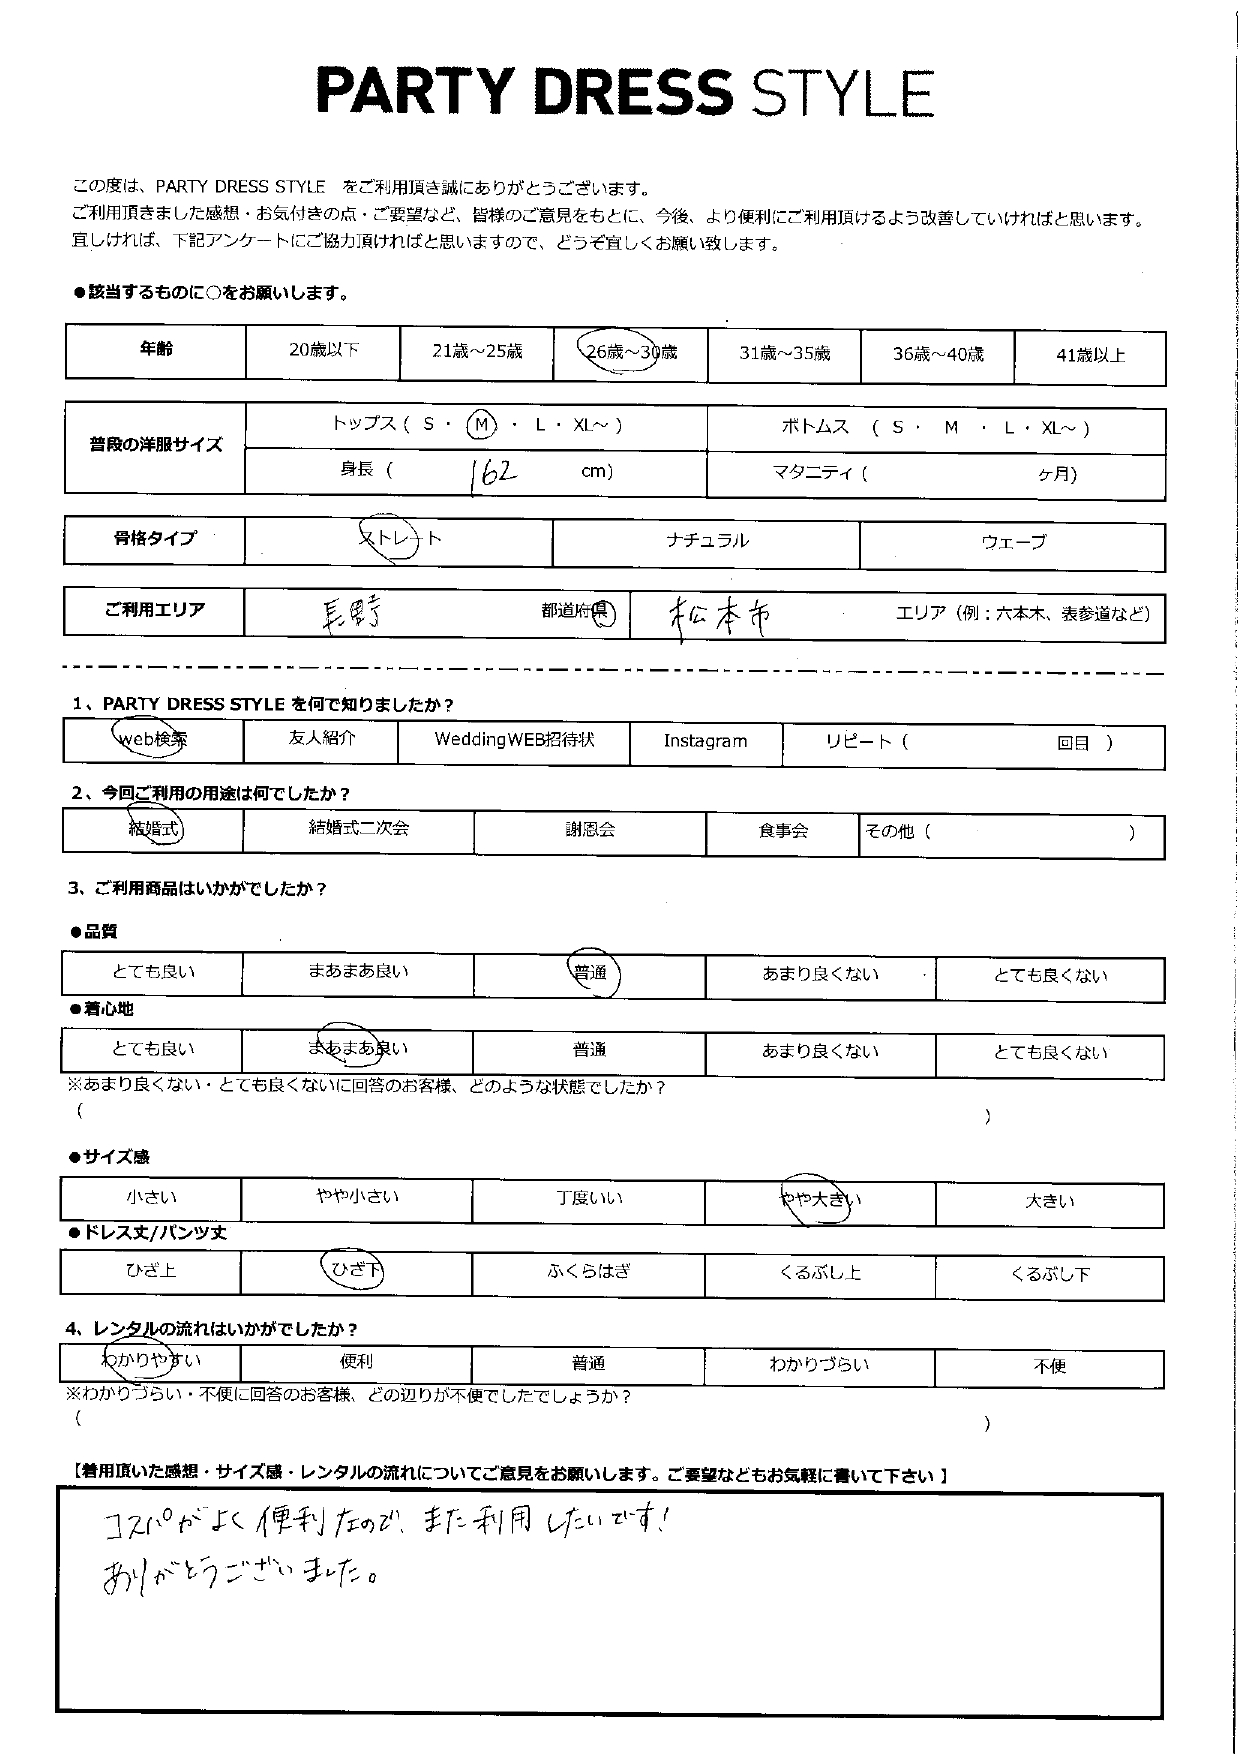 PARTY DRESS STYLE
この度は、PARTY DRESS STYLE をご利用頂き誠にありがとうございます。
ご利用頂きました感想・お気付きの点・ご要望など、皆様のご意見をもとに、今後、より便利にご利用頂けるよう改善していければと思います。
宜しければ、下記アンケートにご協力頂ければと思いますので、どうぞ宜しくお願い致します。
●該当するものに○をお願いします。
年齢 20歳以下 21歳～25歳 26歳～30歳 31歳～35歳 36歳～40歳 41歳以上
普段の洋服サイズ トップス ( S ・ M ・ L ・ XL～ ) ボトムス ( S ・ M ・ L ・ XL～ )
身長 ( 162 cm) マタニティ ( ヶ月)
骨格タイプ ストレート ナチュラル ウェーブ
ご利用エリア 長野 都道府県 松本市 エリア（例：六本木、表参道など）
1、PARTY DRESS STYLE を何で知りましたか？
web検索 友人紹介 WeddingWEB招待状 Instagram リピート ( 回目 )
2、今回ご利用の用途は何でしたか？
結婚式 結婚式二次会 謝恩会 食事会 その他 ( )
3、ご利用商品はいかがでしたか？
●品質
とても良い まあまあ良い 普通 あまり良くない とても良くない
●着心地
とても良い まあまあ良い 普通 あまり良くない とても良くない
※あまり良くない・とても良くないに回答のお客様、どのような状態でしたか？
( )
●サイズ感
小さい やや小さい 丁度いい やや大きい 大きい
●ドレス丈/パンツ丈
ひざ上 ひざ下 ふくらはぎ くるぶし上 くるぶし下
4、レンタルの流れはいかがでしたか？
わかりやすい 便利 普通 わかりづらい 不便
※わかりづらい・不便に回答のお客様、どの辺りが不便でしたでしょうか？
( )
【着用頂いた感想・サイズ感・レンタルの流れについてご意見をお願いします。ご要望などもお気軽に書いて下さい】
コスパがよく便利なので、また利用したいです！
ありがとうございました。